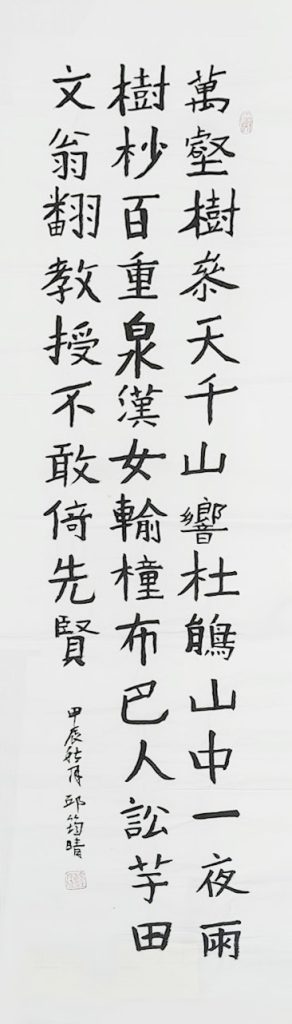 萬壑樹參天千山響杜鵑山中一夜雨
樹杪百重泉漢女輸橦布巴人訟芋田
文翁翻教授不敢倚先賢
甲辰秋月邱筠晴